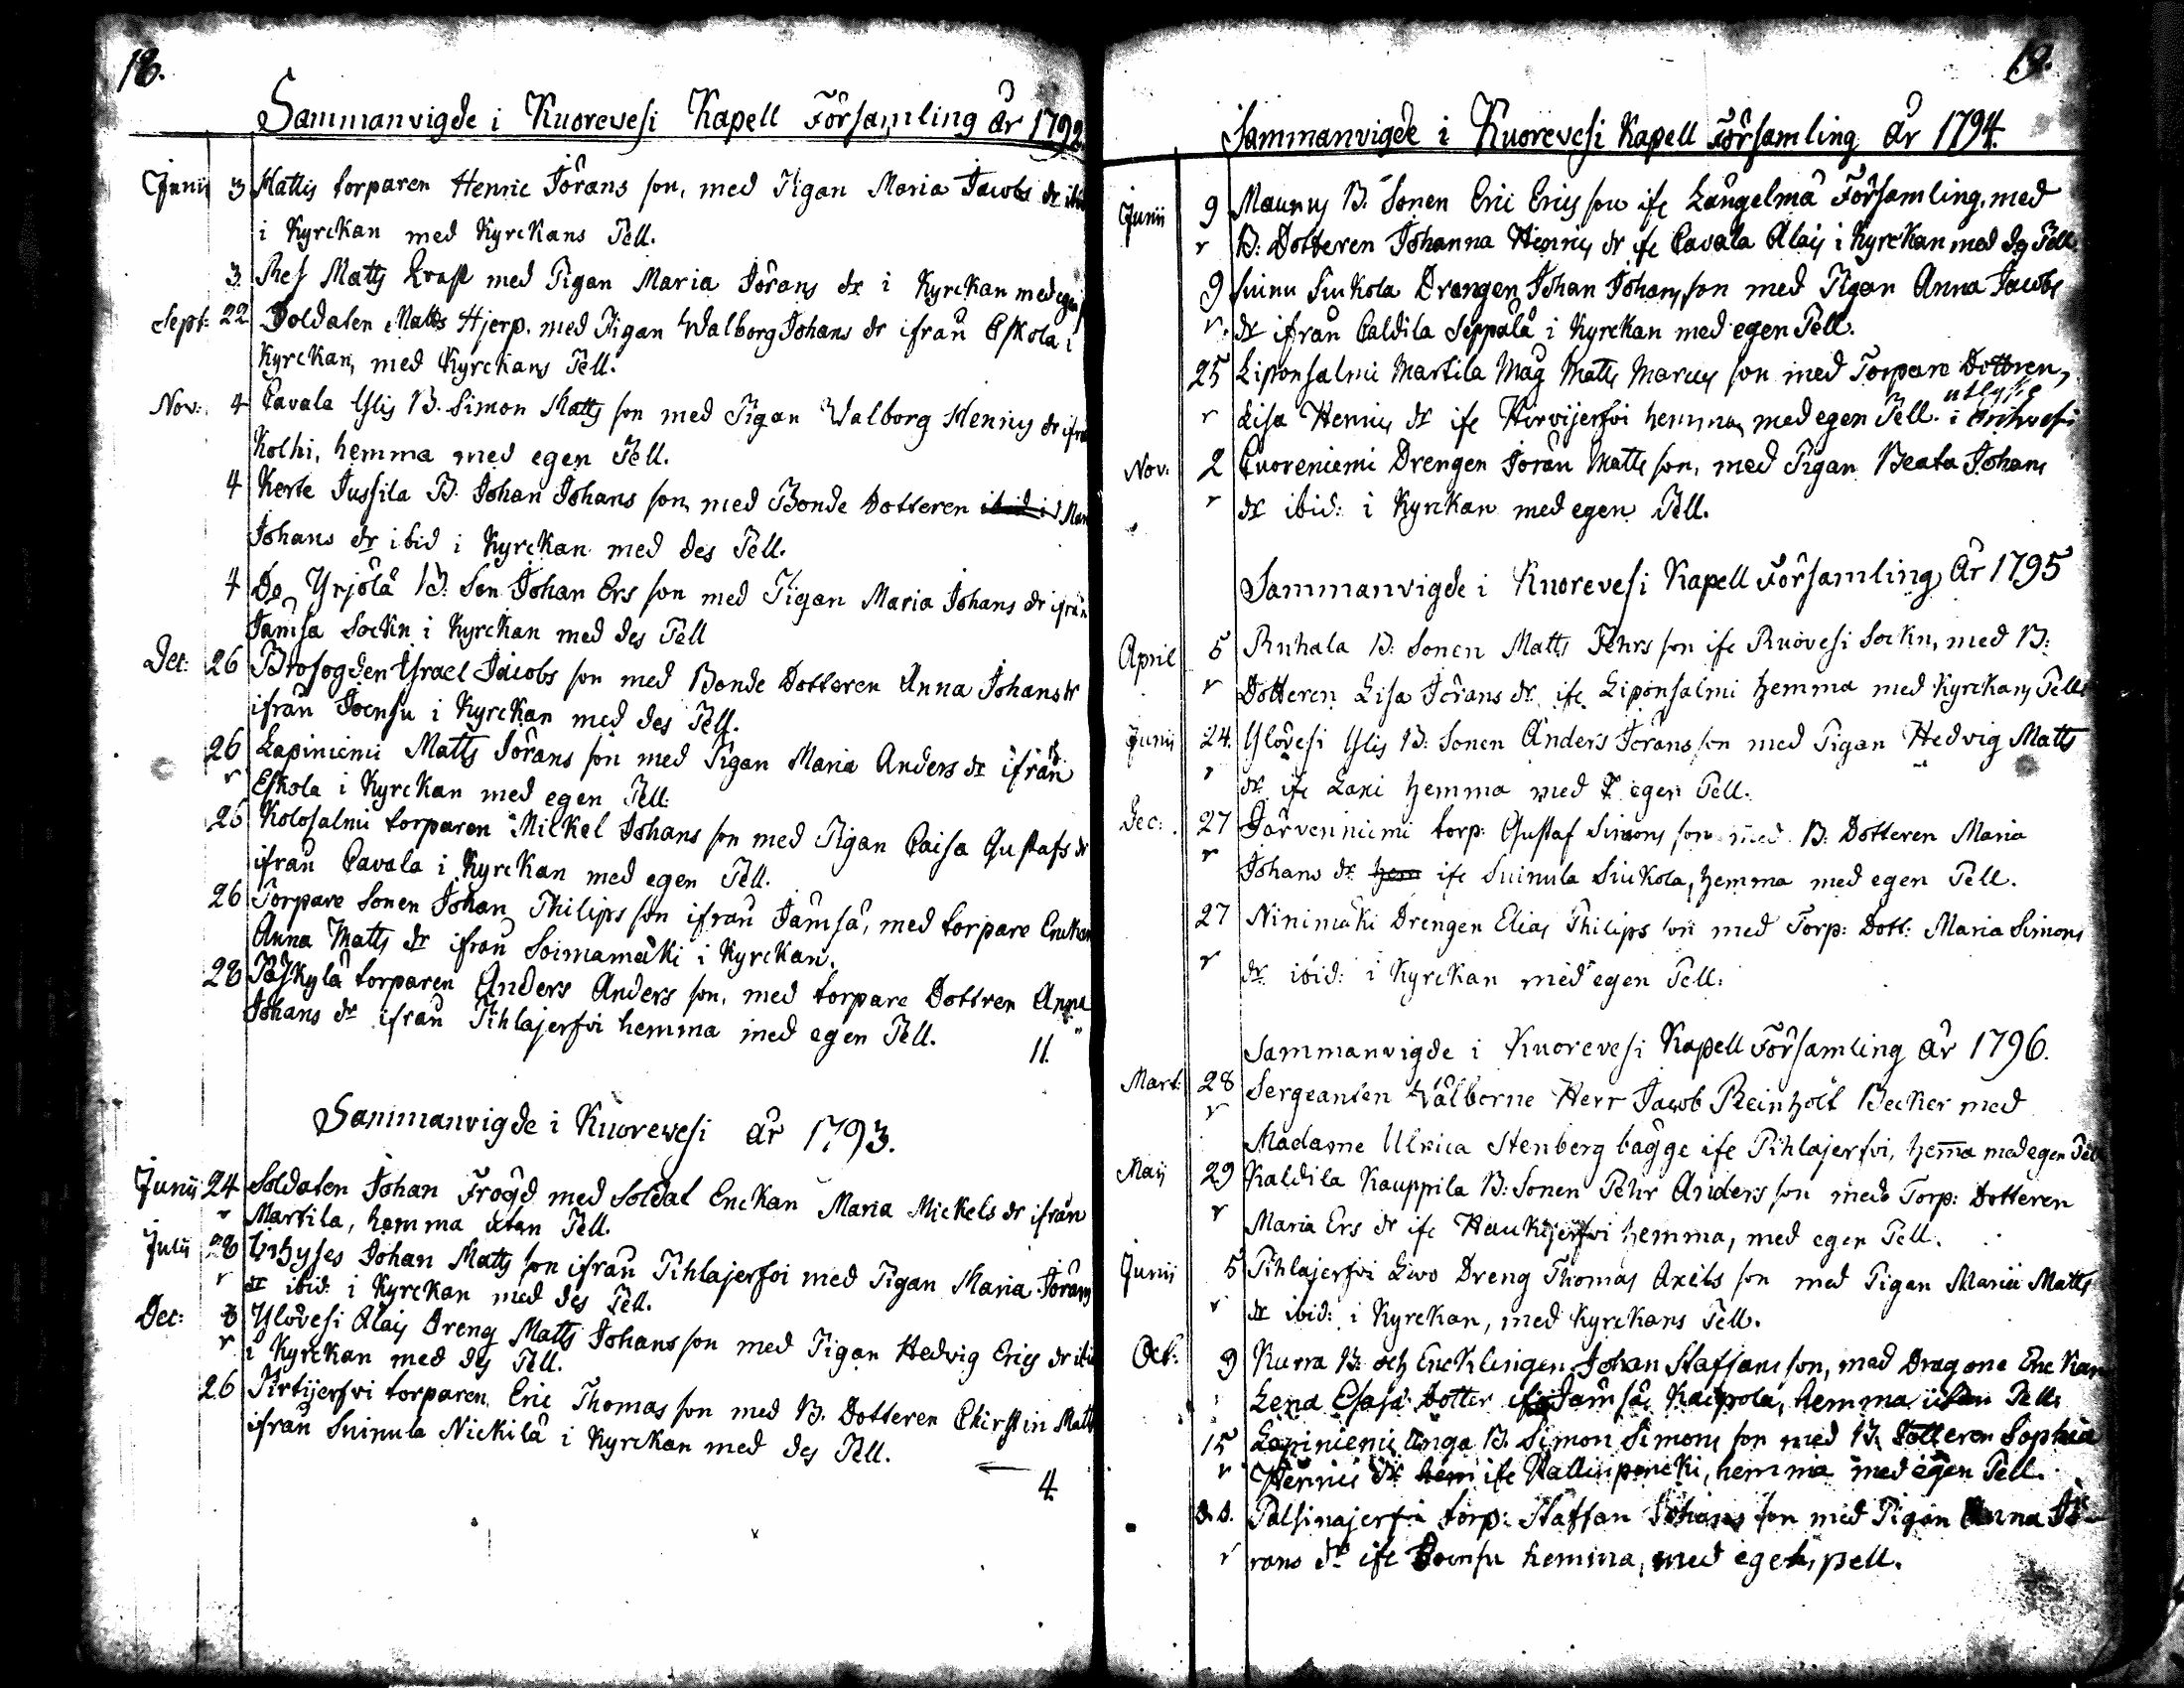 18.
Sammanvigde i Kuorevesi Kapell Församling år 1792
Junii 3 Mattis torparen Henric Jörans son, med Pigan Maria Jacobs dr
i Kyrckan med Kyrckans Pell.
3. Matts med Pigan Maria Jörans dr i Kyrckan med egen
Sept: 22 Soldaten Matts Hjerp, med Pigan Walborg Johans dr ifrån Eskola i
Kyrckan, med Kyrckans Pell.
Nov: 4 Pavala Ylis B. Simon Matts son med Pigan Walborg Henrics dr ifrån
Kolhi, hemma med egen Pell.
4 Kerte Jussila B. Johan Johans son, med Bonde Dotteren
Johans dr ibid i Kyrckan med des Pell.
4 Do Yrjölä B: Son Johan Ers son med Pigan Maria Johans dr ifrån
Jämsä Sockn i Kyrckan med des Pell
Dec: 26 Israel Jacobs son med Bonde Dotteren Anna Johans dr
ifrån Joensu i Kyrckan med des Pell.
26 Lapiniemi Matts Jörans son med Pigan Maria Anders dr ifrån
r Eskola i Kyrckan med egen Pell.
26 Kolosalmi torparen Mickel Johans son med Pigan Caisa Gustafs dr
ifrån Pavala i Kyrckan med egen Pell.
26 Torpare Sonen Johan Philips son ifrån Jämsä, med torpare Enckan
Anna Matts dr ifrån Soimamäki i Kyrckan.
28 torparen Anders Anders son, med torpare Dottren Anna
Johans dr ifrån Pihlajerfvi hemma med egen Pell.
11.
Sammanvigde i Kuorevesi år 1793.
Junii 24 Soldaten Johan Frögd med Soldat Enckan Maria Mickels dr ifrån
r Martila, hemma utan Pell.
Julii 28 Johan Matts son ifrån Pihlajerfvi med Pigan Maria Jörans
r dr ibid: i Kyrckan med des Pell.
Dec: Ylövesi Alais Dreng Matts Johans son med Pigan Hedvig Erics dr
r i Kyrckan med des Pell.
26 Pirtijerfvi torparen Eric Thomas son med B. Dotteren Chirstin Matts
ifrån Suinula Nickilä i Kyrckan med des Pell.
4.
19.
Sammanvigde i Kuorevesi Kapell Församling år 1794.
Junii 9 Maunus B. Sonen Eric Erics son ifr Längelmä Församling, med
r B: Dotteren Johanna Henrics dr ifr Pavala Alais i Kyrckan med des Pell.
9 Siukola Drengen Johan Johans son med Pigan Anna Jacobs
r. dr ifrån Caldila Seppälä i Kyrckan med egen Pell.
25 Liponsalmi Martila Måg Matts Marcus son med Torpare Dottren,
r Lisa Henrics dr ifr Hirvijerfvi hemma, med egen Pell. i
Nov: 2 Cuoreniemi Drengen Jöran Matts son, med Pigan Beata Johans
r dr ibid: i Kyrckan med egen Pell.
Sammanvigde i Kuorevesi Kapell Församling År 1795
April 5 Ruhala B: Sonen Matts Pehrs son ifr Ruovesi Sockn, med B:
r Dotteren Lisa Jörans dr ifr Liponsalmi hemma med Kyrckans Pell
Junii 24. Ylövesi Ylis B: Sonen Anders Jörans son med Pigan Hedvig Matts
r dr ifr Lari hemma med egen Pell.
Dec: 27 Järvenniemi torp: Gustaf Simons son med B: Dotteren Maria
r Johans dr ifr Suinula Siukola, hemma med egen Pell.
27 Ninimäki Drengen Elias Philips son med Torp: Dott: Maria Simons
r dr ibid: i Kyrckan med egen Pell.
Sammanvigde i Kuorevesi Kapell Församling år 1796.
Mart: 28 Sergeanten Wälborne Herr Jacob Reinholt Becker med
r Madame Ulrica Stenberg bägge ifr Pihlajerfvi, hema med egen Pell
Maij 29 Kaldila Kauppila B: Sonen Pehr Anders son med Torp: Dotteren
r Maria Ers dr ifr Haukijerfvi hemma, med egen Pell.
Junii 5 Pihlajerfvi Livo Dreng Thomas Axels son med Pigan Maria Matts
r dr ibid: i Kyrckan, med Kyrckans Pell.
Oct: 9 Kurra B: och Encklingen Johan Staffans son, med Dragone Enckan
Lena Esajä Dotter ifr Jämsä, Kaipola, hemma utan Pell.
15 Lapiniemi Unga B. Simon Simons son med B. Dotteren Sophia
r Henrics dr ifr hemma med egen Pell.
d.d. Palsinajerfvi torp: Staffan Johans son med Pigan Anna Jö-
r rans dr ifr Joensu hemma, med egen pell.